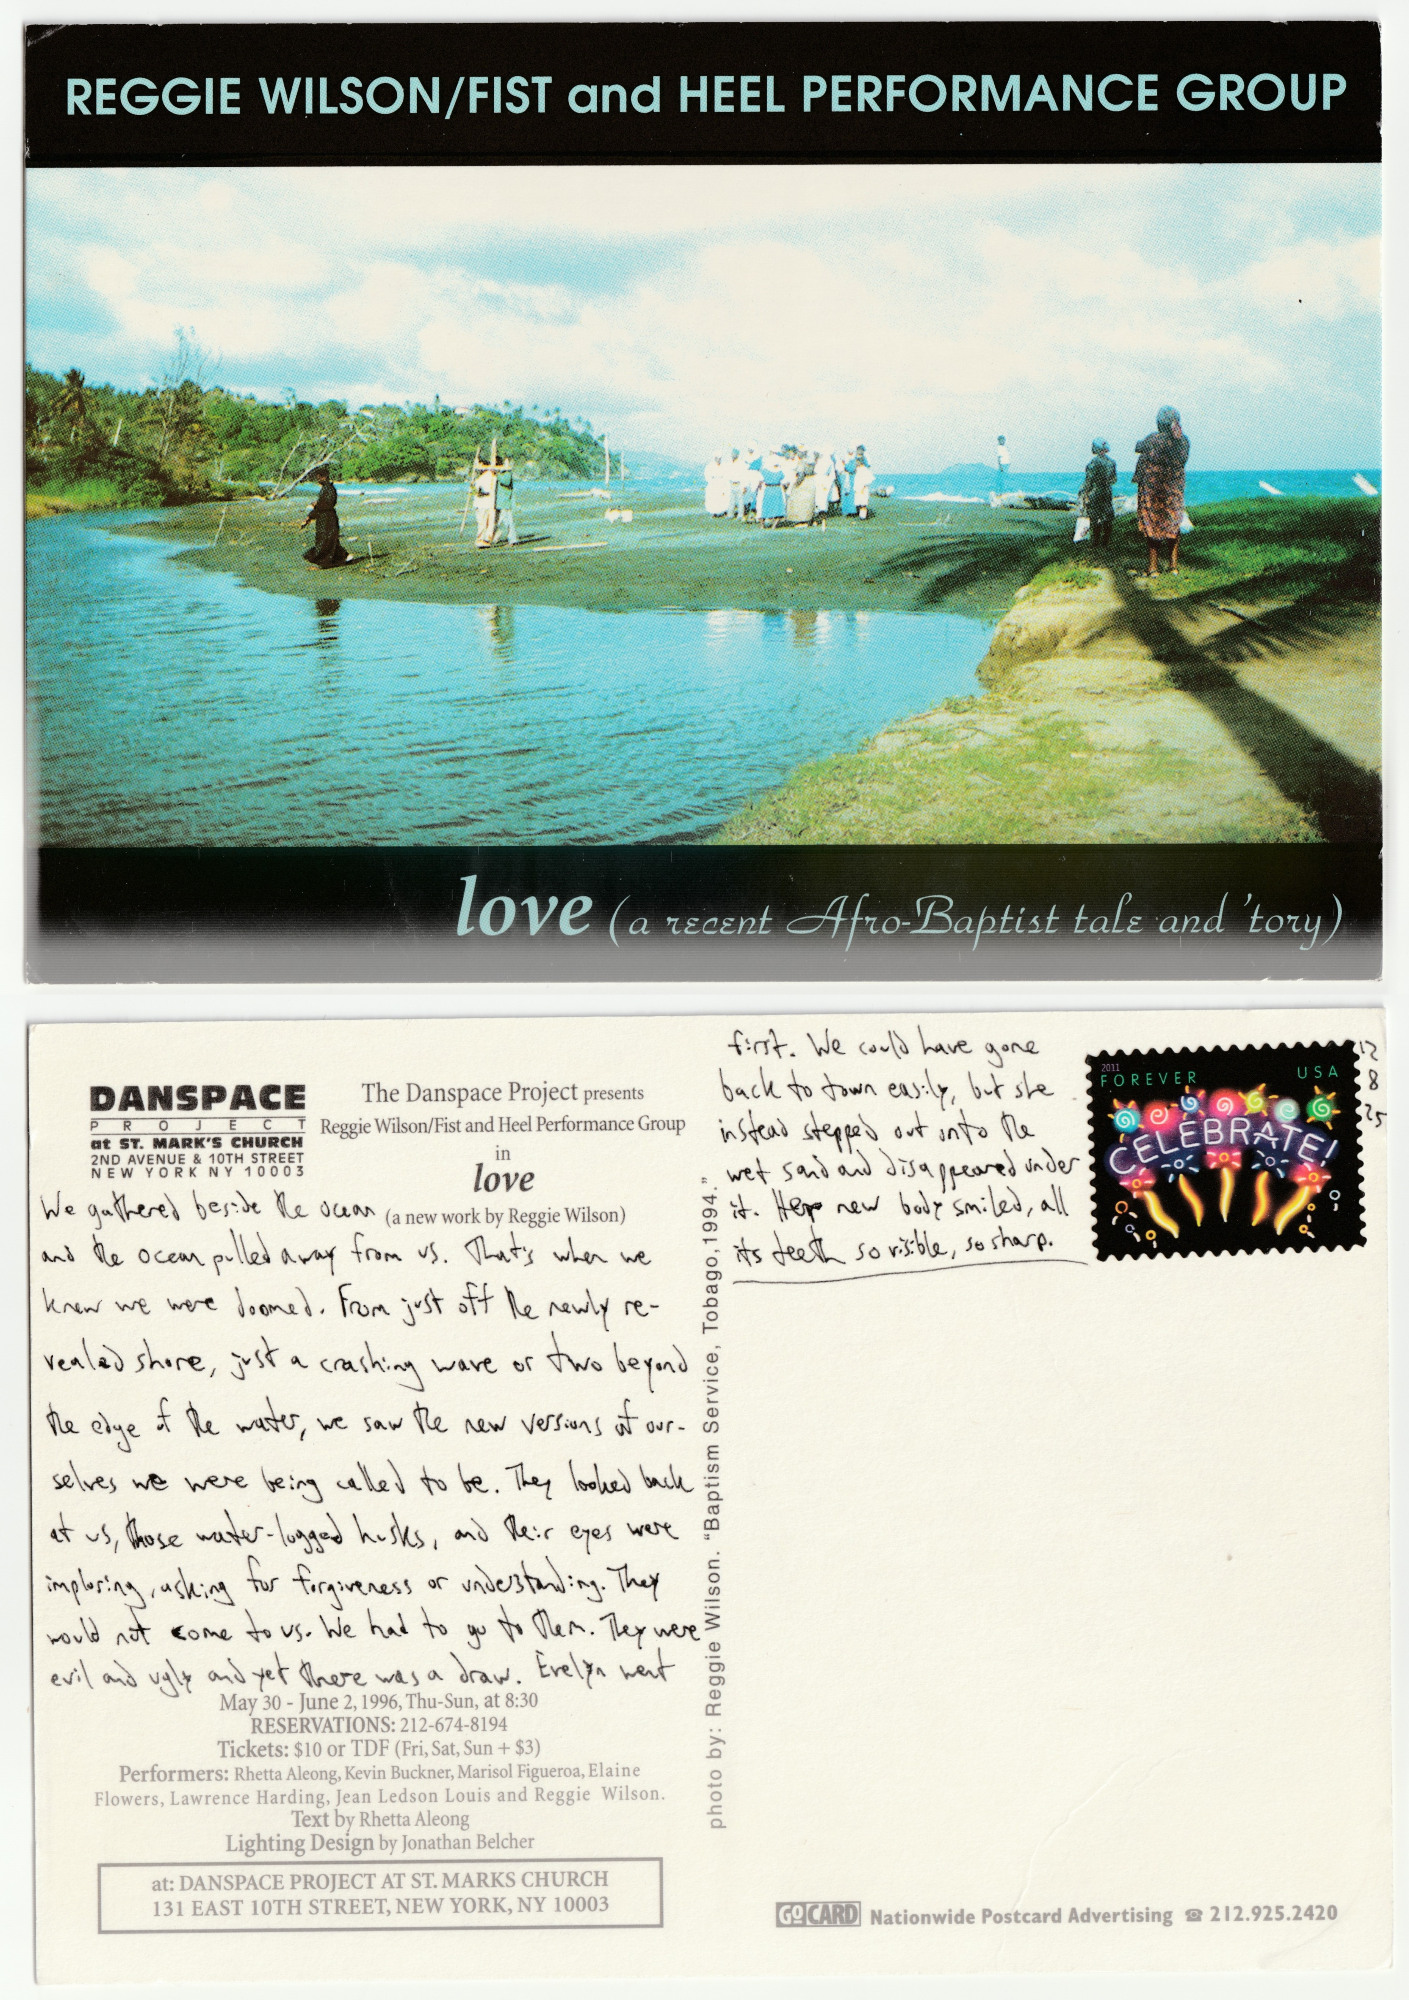 REGGIE WILSON/FIST and HEEL PERFORMANCE GROUP
love (a recent Afro-Baptist tale and 'tory)
DANSPACE
PROJECT
at ST. MARK'S CHURCH
2ND AVENUE & 10TH STREET
NEW YORK NY 10003
The Danspace Project presents
Reggie Wilson/Fist and Heel Performance Group
in
love
(a new work by Reggie Wilson)
We gathered beside the ocean
and the ocean pulled away from us. That's when we
knew we were doomed. From just off the newly re-
vealed shore, just a crashing wave or two beyond
the edge of the water, we saw the new versions of our-
selves we were being called to be. They looked back
at us, those water-logged husks, and their eyes were
imploring, asking for forgiveness or understanding. They
would not come to us. We had to go to them. They were
evil and ugly and yet there was a draw. Evelyn went
May 30 - June 2, 1996, Thu-Sun, at 8:30
RESERVATIONS: 212-674-8194
Tickets: $10 or TDF (Fri, Sat, Sun + $3)
Performers: Rhetta Aleong, Kevin Buckner, Marisol Figueroa, Elaine
Flowers, Lawrence Harding, Jean Ledson Louis and Reggie Wilson.
Text by Rhetta Aleong
Lighting Design by Jonathan Belcher
at: DANSPACE PROJECT AT ST. MARKS CHURCH
131 EAST 10TH STREET, NEW YORK, NY 10003
photo by: Reggie Wilson. "Baptism Service, Tobago, 1994."
first. We could have gone
back to town easily, but she
instead stepped out onto the
wet sand and disappeared under
it. Her new body smiled, all
its teeth so visible, so sharp.
2011
FOREVER USA
CELEBRATE!
12
8
25
GOCARD Nationwide Postcard Advertising ☎ 212.925.2420